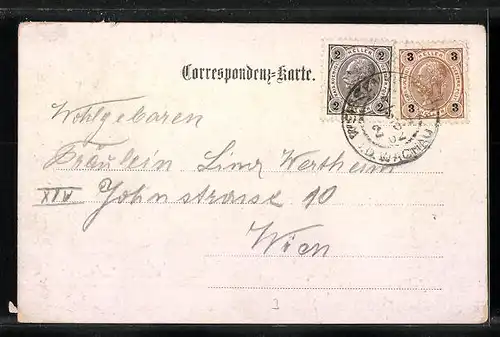 Correspondenz-Karte.
2 HELLER 2
2 2
3 HELLER 3
3 3
D. WACHAU
Wohlgeboren
Fräulein Lina Wertheim
XIV Johnstrasse 10
Wien